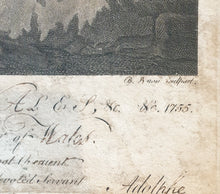 B. Baron Sculpsit.
A L E S, &c. &c. 1755.
of Wales.
Obedient
devoted Servant
Adolphe